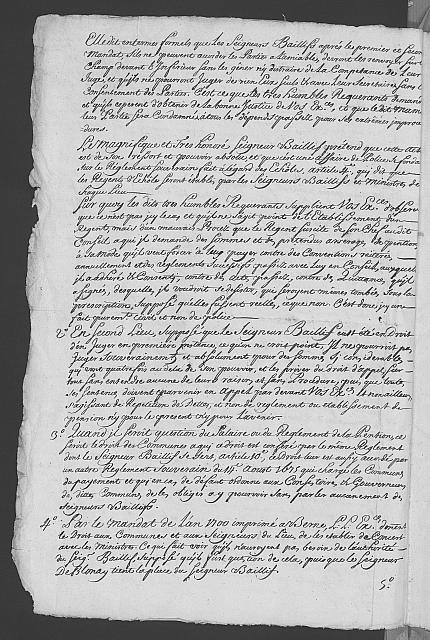 Elle dit en termes formels que les Seigneurs Baillifs après les premier et second
Mandat, s'ils ne peuvent accorder les Parties à l'amiable, devront les renvoyer sur le
Champ devant l'Inferieur sans les gêner n'y distraire de la Competance de Leur
Juge, et qu'ils ne pourront Juger de rien Eux seuls n'y avec Leur Secretaire sans le
Consentement des Parties. C'est ce que les tres humbles Requerants demandent
et qu'ils esperent d'obtenir de la bonne Justice de Vos Ex.ces et que le dit
leur Partie sera Condamné à tous les dépends passés pour ses extrêmes
dures.
Le Magnifique et Tres honoré Seigneur Baillif prétend que cette
est de son ressort et pouvoir absolu, et que c'est une affaire de Police
sur le Reglement Souverain fait à l'égard des Echoles, article 4, qui dit que
les Regents d'Echole seront établis par les Seigneurs Baillifs et ministres de
chaque Lieu.
Sur quoy les dits tres humbles Requerants Supplient Vos Ex.ces d'observer
que ce n'est pas icy le cas, et qu'il ne s'agit point de l'Etablissement d'un
Regent, mais d'un mauvais Procès que le Regent suscite de son Chef au dit
Conseil à qui il demande des sommes et de prétendus arrerage de pention
à sa mode qu'il veut forcer à leur payer contre des Conventions réiterées
annuellement et des reglements Successifs passés avec Luy en Conseil, auxquels
il a adhéré et Consenty, contre des actes passés, contre des Quittances qu'il
signées, desquelles il voudroit se desister, qui seroyent mêmes tombées sous la
prescription, Supposé qu'elles fussent reelles, ce que non. C'est donc icy un
fait purement Civil et non de Police.
2.° En second Lieu, Supposé que le Seigneur Baillif fust été en Droit
d'en Juger en premiere instance, ce qu'on ne croit point, Il ne pourroit pas
Juger Souverainement et absolument pour des sommes si considerable,
qui vont quatre fois au delà de son pouvoir, et les priver du droit d'appel
sans entendre aucune de leurs raisons, et sans Procedure, puis que toute
sentence doit parvenir en Appel par devant Vos Ex.ces
s'agissant de Repetition de Dettes, et non de reglement ou établissement de
pension n'y pour le présent n'y pour l'avenir.
3.° Quand il seroit question de Salaire ou du Reglement de la Pension, ce
seroit le droit des Communes à qui ce Droit est conferé par le même Reglement
dont le Seigneur Baillif se sert, article 18.°, ce Droit leur est aussy accordé par
un autre Reglement Souverain du 14.e aoust 1675 qui charge les Communes
du payement et qui en cas de defaut ordonne aux Consistoires et Gouverneurs
des dites Communes de les obliger à y pourvoir sans parler aucunement des
Seigneurs Baillifs.
4.° Par le mandat de l'an 1700 imprimé à Berne, L.L. Ex.ces donnent
le Droit aux Communes et aux Seigneurs du Lieu, de les établir de Concert
avec les Ministres. Ce qui fait voir qu'ils n'auroyent pas besoin de l'authorité
du Seig.r Baillif, Supposé qu'il fust question de cela, puis que le Seigneur
De Blonay tient la place du Seigneur Baillif.
5.°